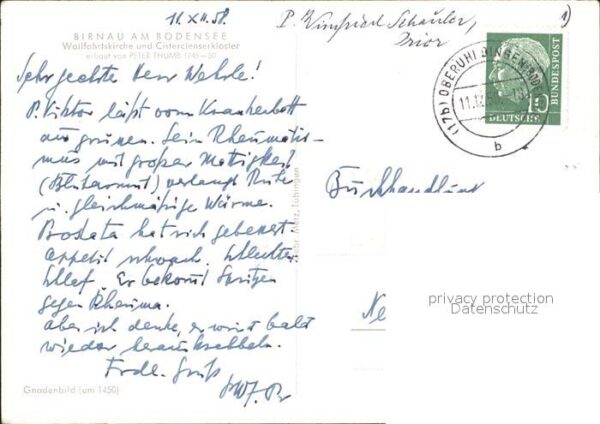 11. XII. 58.
P. Winfried Schäuler,
Prior
1)
BIRNAU AM BODENSEE
Wallfahrtskirche und Cistercienserkloster
erbaut von PETER THUMB 1746–50
(17b) OBERUHLDINGEN
11.12.
b
10
DEUTSCHE
BUNDESPOST
Sehr geehrter Herr Wehrle!
P. Viktor läßt vom Krankenbett
aus grüssen. Sein Rheumatis-
mus mit großer Mattigkeit
(Blutarmut) verlangt Ruhe
u. gleichmäßige Wärme.
Prostata hat sich gebessert.
Appetit schwach. Schlechter
Schlaf. Er bekomt Spritzen
gegen Rheuma.
Aber ich denke, er wird bald
wieder heraufkrabbeln.
Frdl. Gruß
Buchhandlung
Ne
Metz, Tübingen
privacy protection
Datenschutz
Gnadenbild (um 1450)